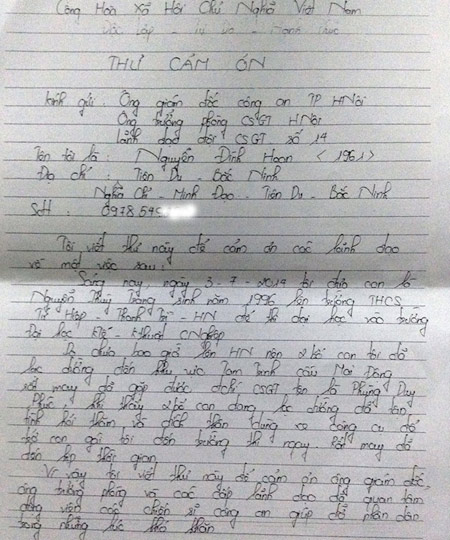 Cộng Hòa Xã Hội Chủ Nghĩa Việt Nam
Độc Lập - Tự Do - Hạnh Phúc
THƯ CẢM ƠN
Kính gửi: Ông giám đốc công an TP HNội
Ông trưởng phòng CSGT HNội
Lãnh đạo đội CSGT số 14
Tên tôi là: Nguyễn Đình Hoan <1961>
Địa chỉ: Tiên Du - Bắc Ninh
Nghĩa Chỉ - Minh Đạo - Tiên Du - Bắc Ninh
SĐT: 0978 595
Tôi viết thư này để cảm ơn các lãnh đạo
về một việc sau:
Sáng nay, ngày 3-7-2014 tôi đưa con là
Nguyễn Thùy Trang sinh năm 1996 lên trường THCS
Tứ Hiệp - Thanh Trì - HN để thi đại học vào trường
Đại học Ktế - Kthuật CNghiệp
Do chưa bao giờ lên HN nên 2 bố con tôi đã
lạc đường đến khu vực Tam Trinh cầu Mai Động
rất may đã gặp được đ/chí CSGT tên là Phùng Duy
khi thấy 2 bố con đang lạc đường đã tận
tình hỏi thăm và đích thân dùng xe công cụ để
trở con gái tôi đến trường thi ngay. Rất may đã
đến kịp thời gian.
Vì vậy tôi viết thư này để cảm ơn ông giám đốc,
ông trưởng phòng và các cấp lãnh đạo đã quan tâm
động viên các chiến sĩ công an giúp đỡ nhân dân
trong những lúc khó khăn